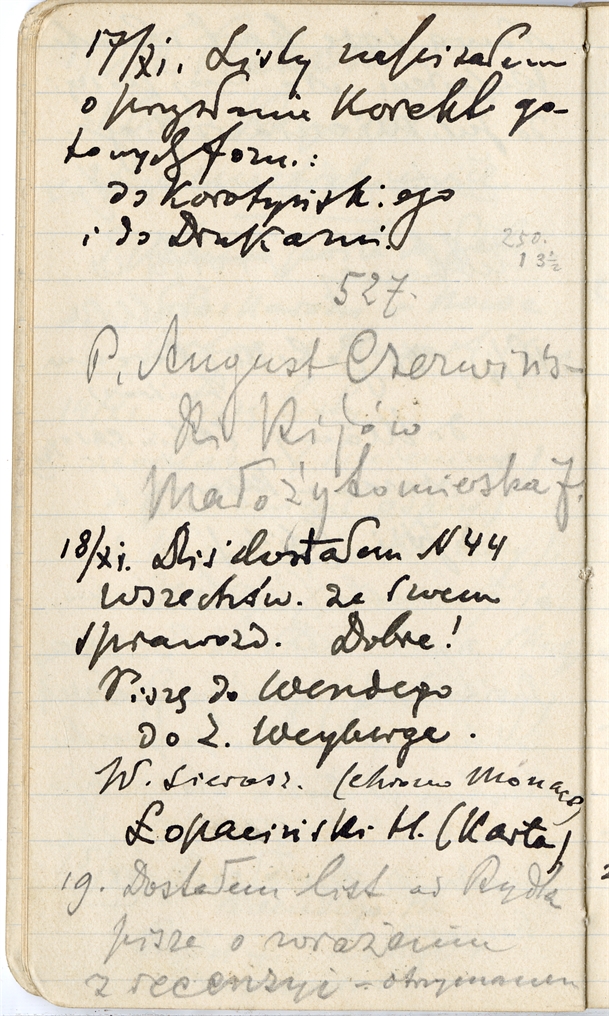 17/XI. Listy napisałem
o przysłanie Korekt go-
towych form.:
do Korotyńskiego
i do Drukarni.
250.
1 3½
527.
P. August Czerwińs-
ki Kijów
Mało Żytomierska 7.
18/XI. Dziś dostałem N 44
wszechśw. ze swem
sprawozd. Dobre!
Piszę do Wendego
do Z. Weyberga.
W. Sierosz. (chromo Monaco)
Łopaciński H. (Karta)
19. Dostałem list od Rydla
pisze o wrażeniu
z recenzyi - otrzymanem